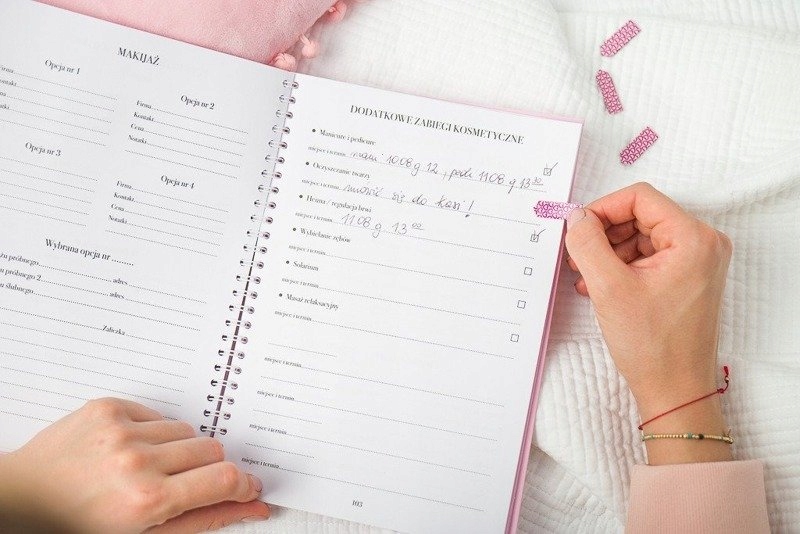 MAKIJAŻ
Opcja nr 1
Firma
Kontakt
Cena
Notatki
Opcja nr 2
Firma
Kontakt
Cena
Notatki
Opcja nr 3
Opcja nr 4
Firma
Kontakt
Cena
Notatki
Wybrana opcja nr
próbnego adres
próbnego 2 adres
ślubnego
Zaliczka
DODATKOWE ZABIEGI KOSMETYCZNE
Manicure i pedicure
miejsce i termin mani 10.08 g 12, pedi 11.08 g 13 30
Oczyszczanie twarzy
miejsce i termin umówić się do Kasi!
Henna / regulacja brwi
miejsce i termin 11.08 g 13 00
Wybielanie zębów
miejsce i termin
Solarium
miejsce i termin
Masaż relaksacyjny
miejsce i termin
miejsce i termin
miejsce i termin
miejsce i termin
miejsce i termin
103